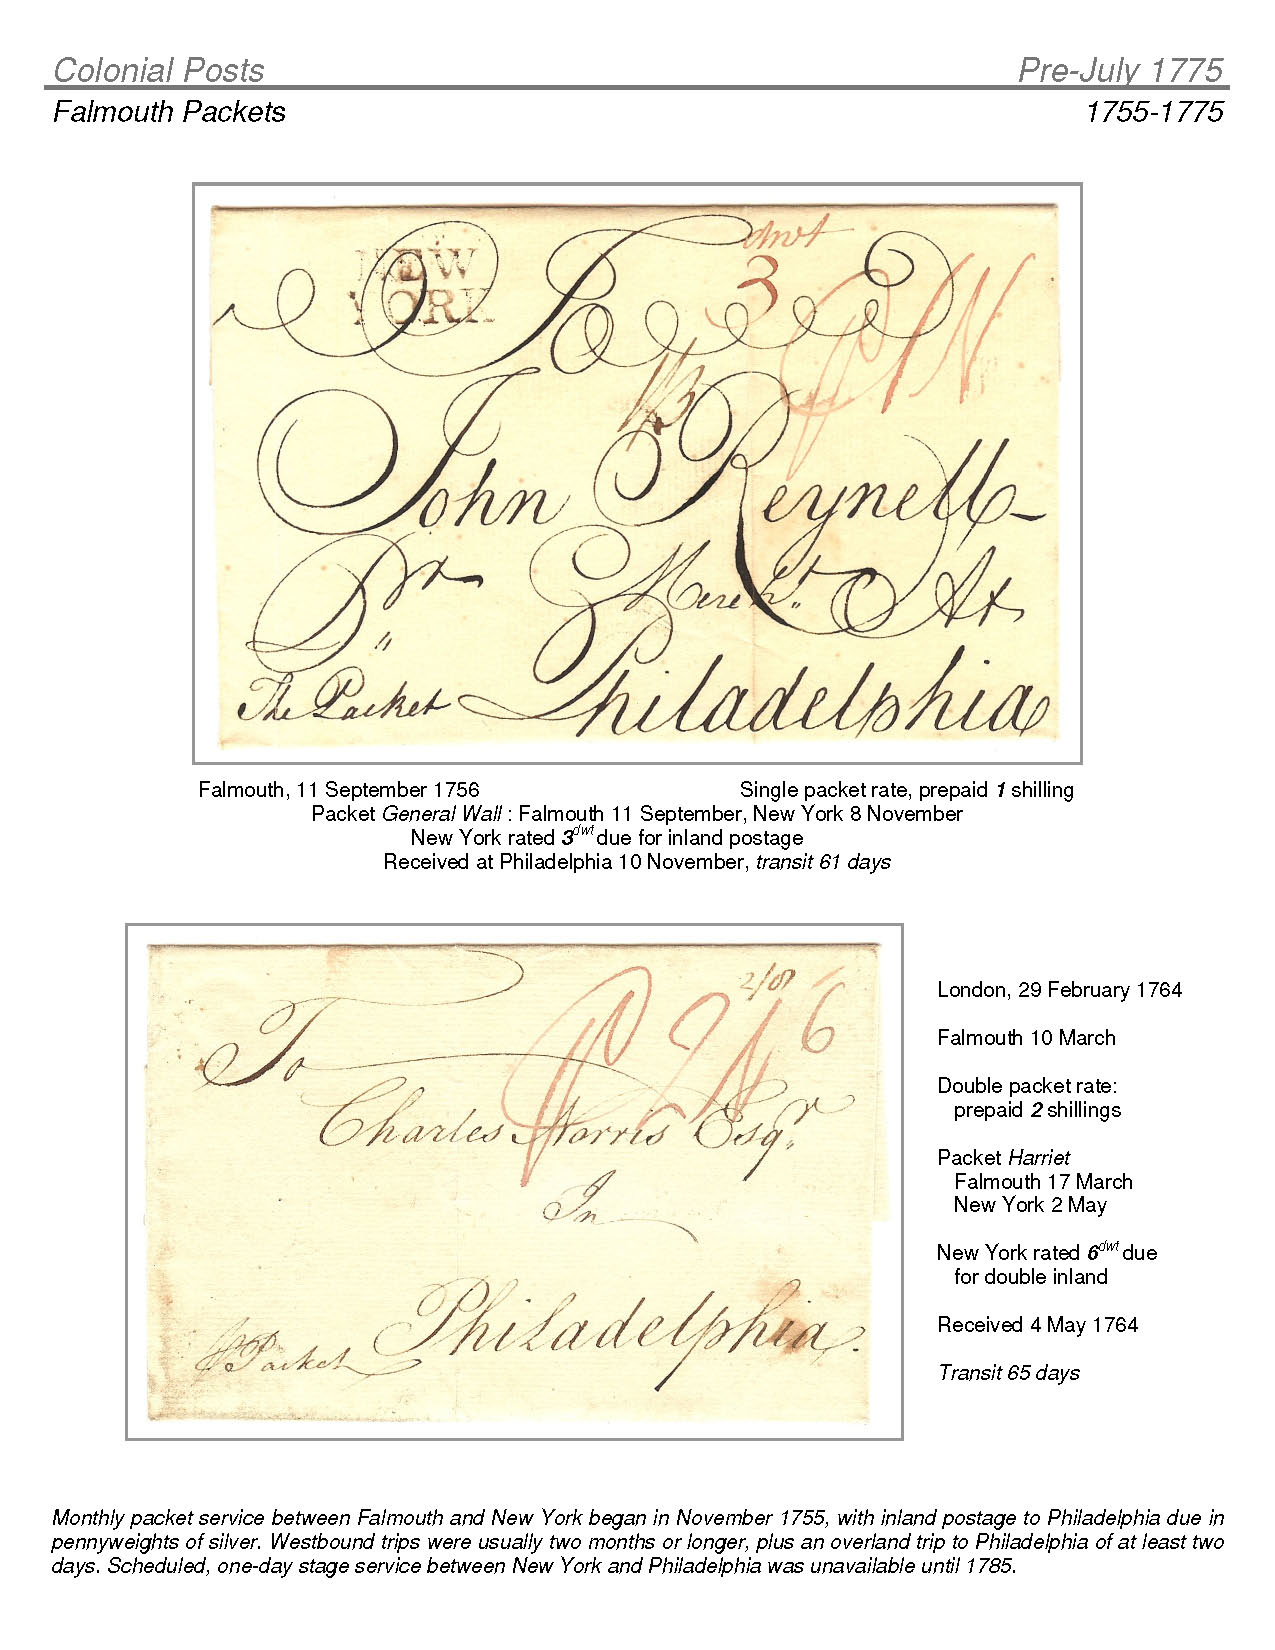 Colonial Posts Pre-July 1775
Falmouth Packets 1755-1775
NEW
YORK
dwt
3
To
P 1 N
1/3
John Reynell
Pr Mercht. At
The Packet Philadelphia
Falmouth, 11 September 1756 Single packet rate, prepaid 1 shilling
Packet General Wall : Falmouth 11 September, New York 8 November
New York rated 3dwt due for inland postage
Received at Philadelphia 10 November, transit 61 days
2/8
P 2 N 6
To
Charles Norris Esqr
In
Philadelphia.
Packet
London, 29 February 1764
Falmouth 10 March
Double packet rate:
prepaid 2 shillings
Packet Harriet
Falmouth 17 March
New York 2 May
New York rated 6dwt due
for double inland
Received 4 May 1764
Transit 65 days
Monthly packet service between Falmouth and New York began in November 1755, with inland postage to Philadelphia due in
pennyweights of silver. Westbound trips were usually two months or longer, plus an overland trip to Philadelphia of at least two
days. Scheduled, one-day stage service between New York and Philadelphia was unavailable until 1785.